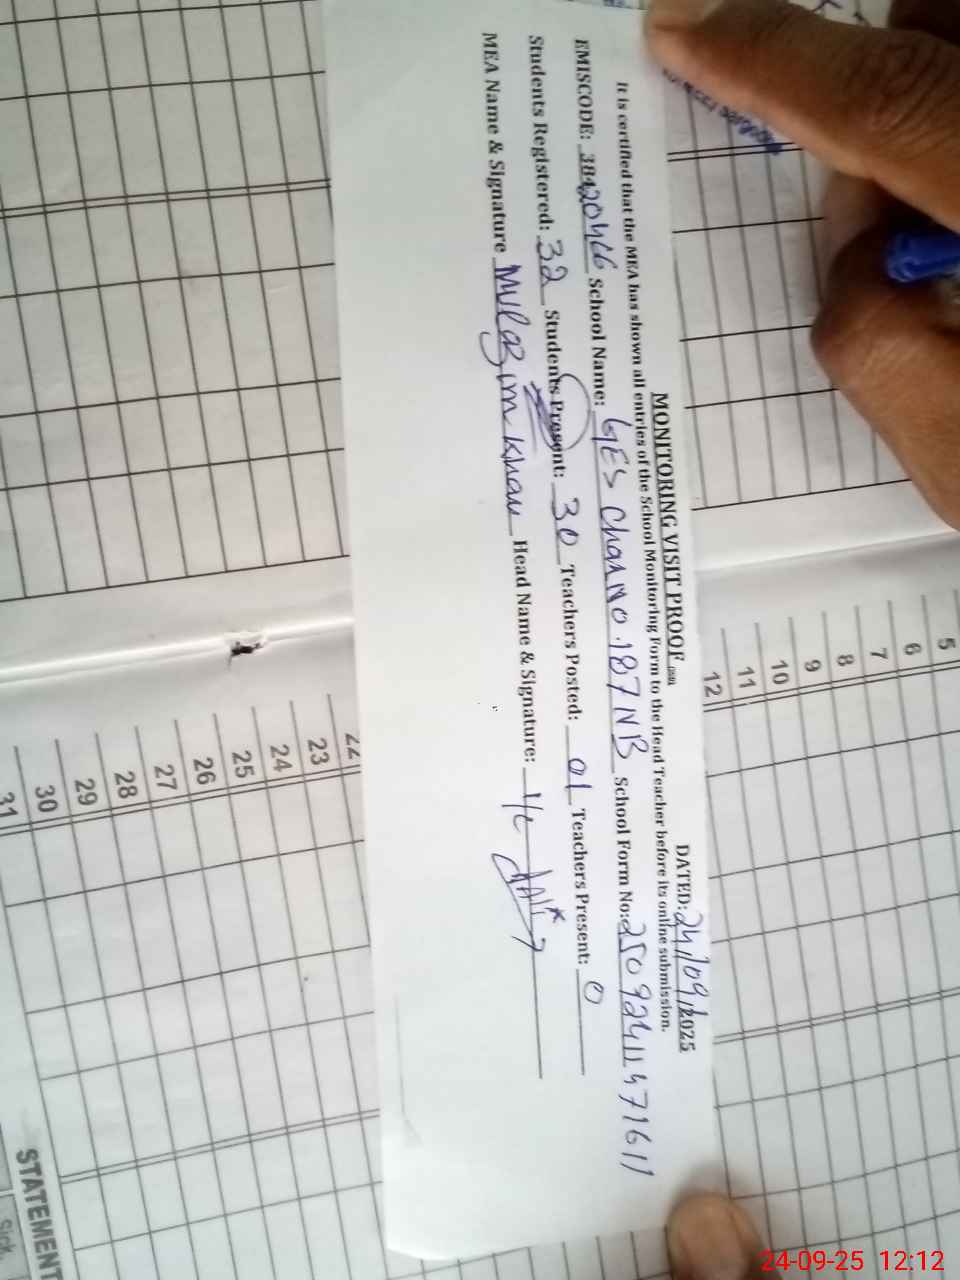 MONITORING VISIT PROOF DATED: 24/09/2025
It is certified that the MEA has shown all entries of the School Monitoring Form to the Head Teacher before its online submission.
EMISCODE: 38420466 School Name: GES Chak No. 187 NB School Form No: 250924115716 11
Students Registered: 32 Students Present: 30 Teachers Posted: 01 Teachers Present: 0
MEA Name & Signature Mulazim Khan Head Name & Signature: I/C
5
6
7
8
9
10
11
12
22
23
24
25
26
27
28
29
30
31
STATEMENT
Sick
24-09-25 12:12